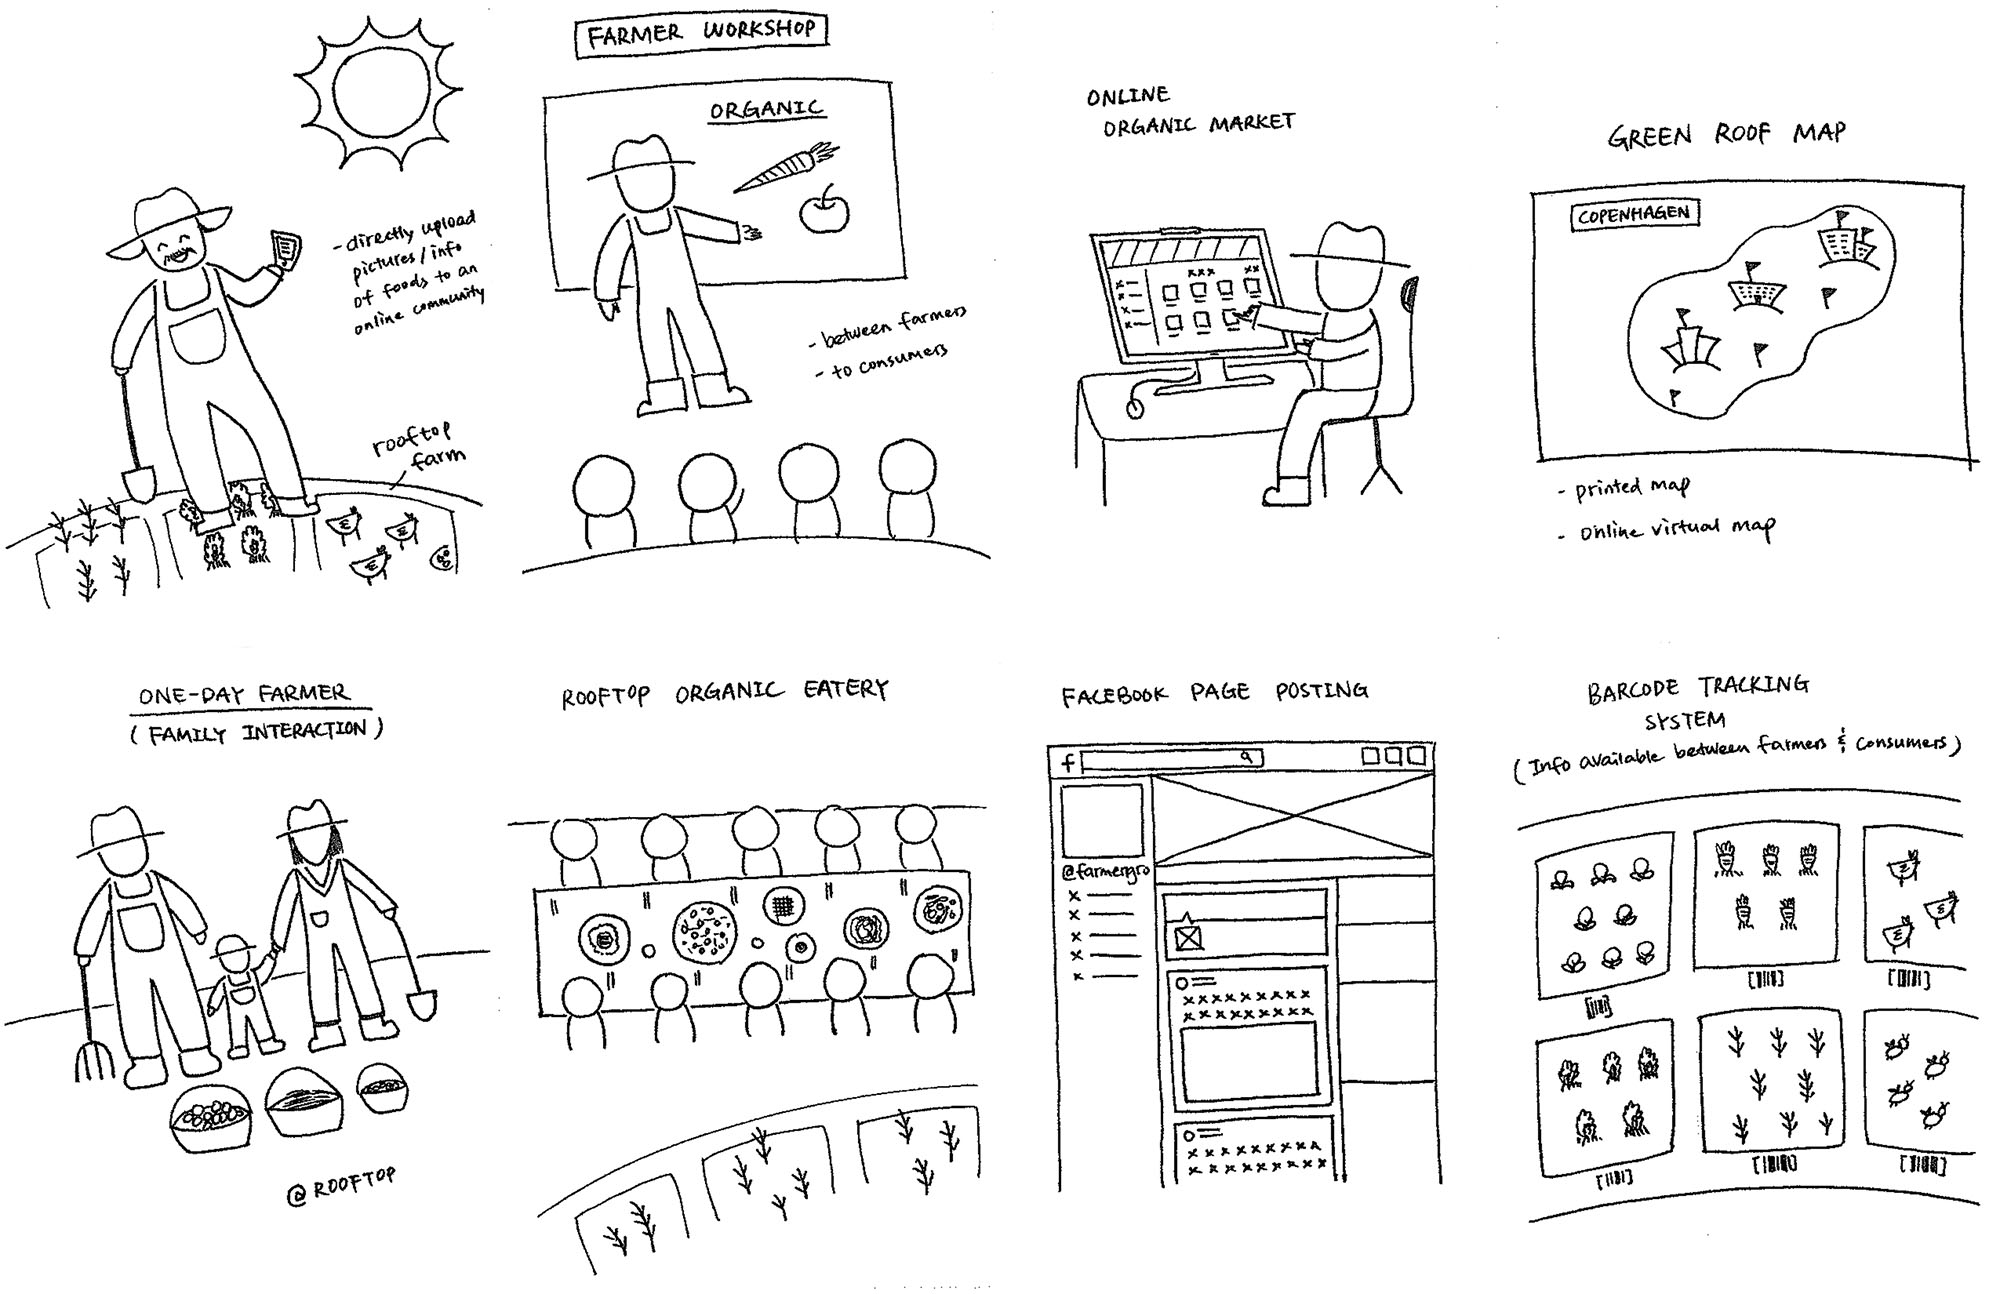 - directly upload
pictures/info
of foods to an
online community
rooftop
farm
FARMER WORKSHOP
ORGANIC
- between farmers
- to consumers
ONLINE
ORGANIC MARKET
xxx xx
x
x
x
x
GREEN ROOF MAP
COPENHAGEN
- printed map
- online virtual map
ONE-DAY FARMER
(FAMILY INTERACTION)
@ ROOFTOP
ROOFTOP ORGANIC EATERY
FACEBOOK PAGE POSTING
f
@farmergro
x
x
x
x
x
xxxxxxxxx
xxxxxxxxx
xxxxxxxxx
xxxxxxxxx
BARCODE TRACKING
SYSTEM
(Info available between farmers & consumers)